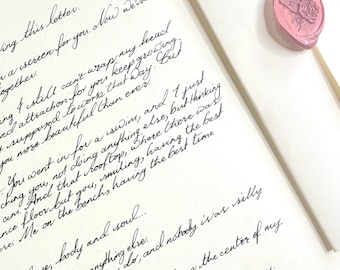 ing this letter.
a screen for you. Now we're
together.
I still can't wrap my head
and attraction for you keep growing.
supposed to work that way. But
you more beautiful than ever.
You went in for a swim, and I just
ching you, not doing anything else, but thinking
am. And that rooftop, where there was
ance floor but you, smiling, having the best
ere. Me on the bench, having the best time
body and soul...
anything else.
do, and nobody is as silly
the center of my